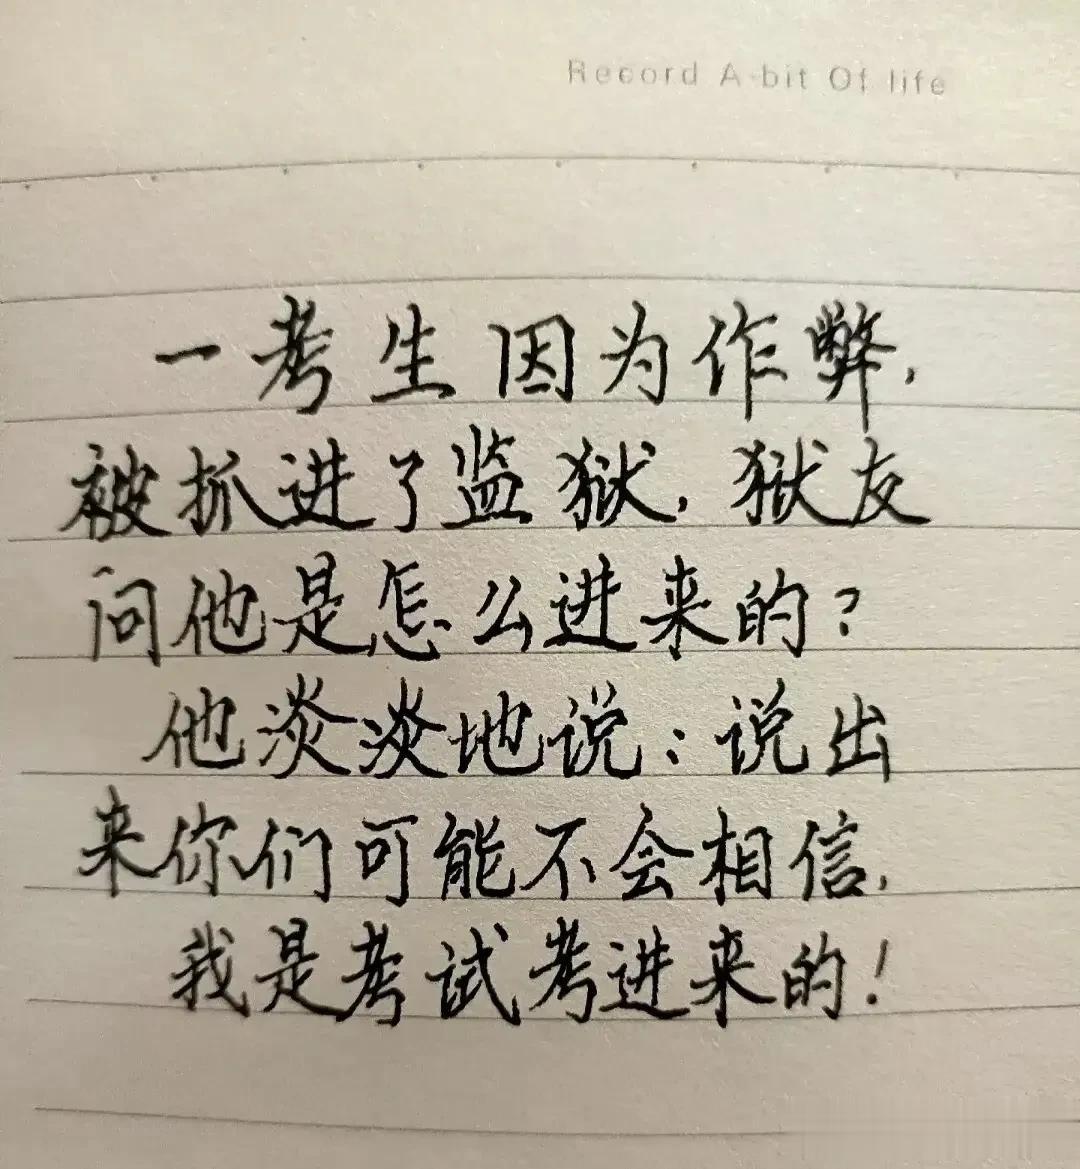 Record A bit Of life
一考生因为作弊,
被抓进了监狱,狱友
问他是怎么进来的?
他淡淡地说:说出
来你们可能不会相信,
我是考试考进来的!